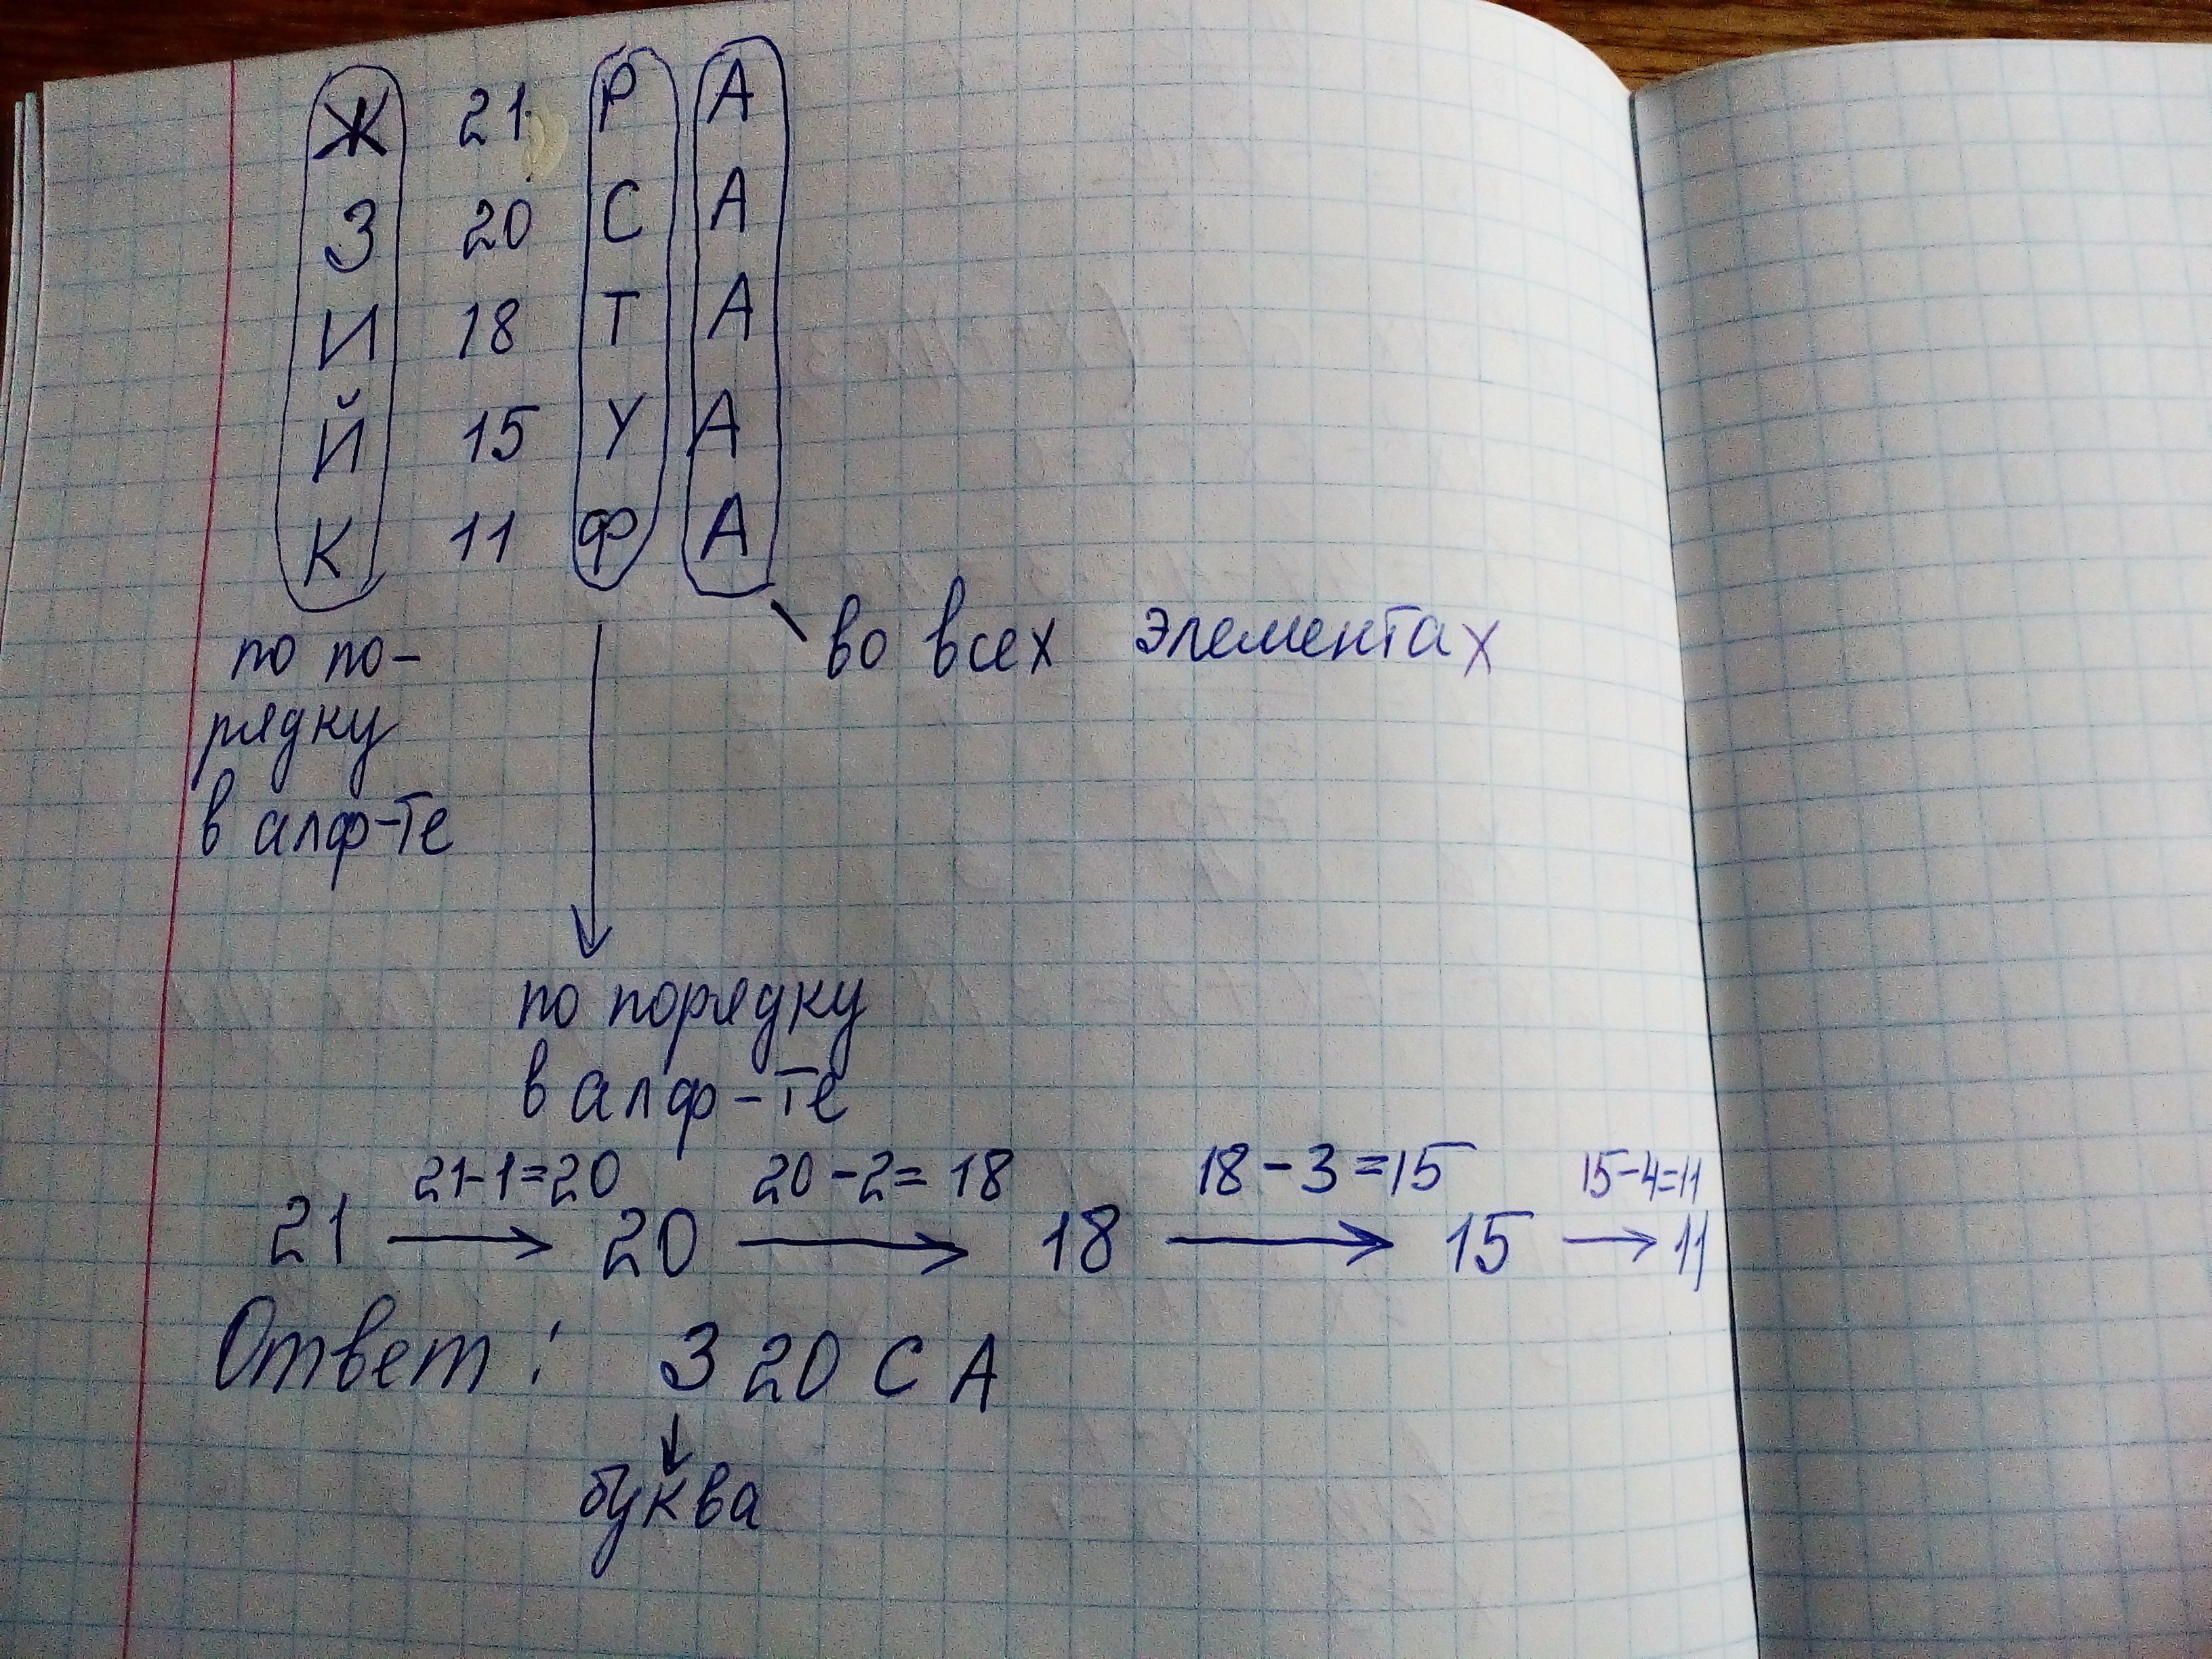 Ж 21 Р А
З 20 С А
И 18 Т А
Й 15 У А
К 11 Ф А
во всех элементах
по по-
рядку
в алф-те
по порядку
в алф-те
21-1=20 20-2=18 18-3=15 15-4=11
21 → 20 → 18 → 15 → 11
Ответ: З 20 С А
буква